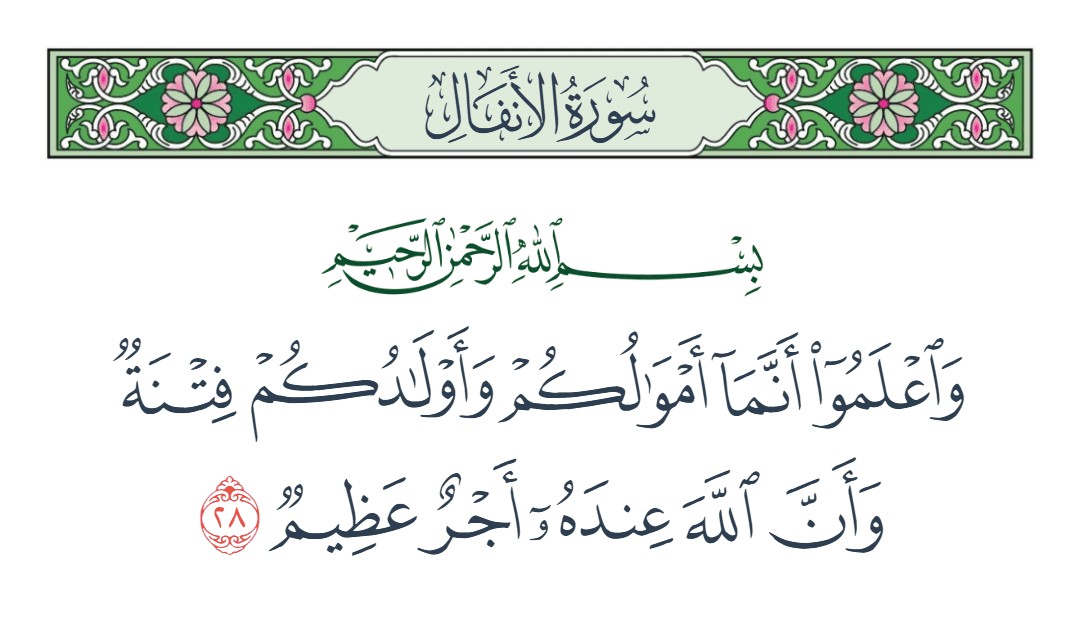 سُورَةُ الأَنفَالِ
بِسْمِ ٱللَّهِ ٱلرَّحْمَٰنِ ٱلرَّحِيمِ
وَٱعْلَمُوٓا۟ أَنَّمَآ أَمْوَٰلُكُمْ وَأَوْلَٰدُكُمْ فِتْنَةٌ
وَأَنَّ ٱللَّهَ عِندَهُۥٓ أَجْرٌ عَظِيمٌ ٢٨